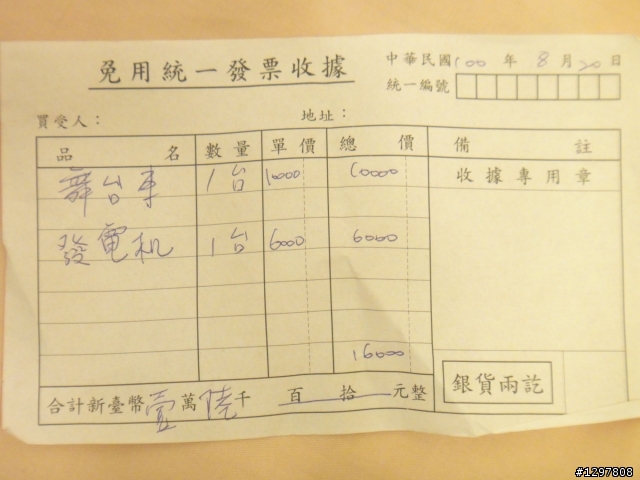 免用統一發票收據
中華民國100年8月20日
統一編號
買受人：
地址：
品名 數量 單價 總價 備註
舞台車 1台 10000 10000
收據專用章
發電机 1台 6000 6000
16000
銀貨兩訖
合計新臺幣壹萬陸千 百 拾 元整
#1297808